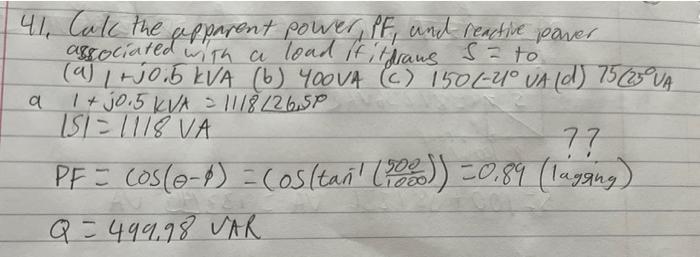 41. Calc the apparent power, PF, and reactive power
associated with a load if it draws S = to
(a) 1+j0.5 kVA (b) 400VA (c) 150∠-21° VA (d) 75∠25° VA
a 1+j0.5 kVA = 1118∠26.57°
|S| = 1118 VA
??
PF = cos(θ-φ) = cos(tan⁻¹(500/1000)) = 0.89 (lagging)
Q = 499.98 VAR